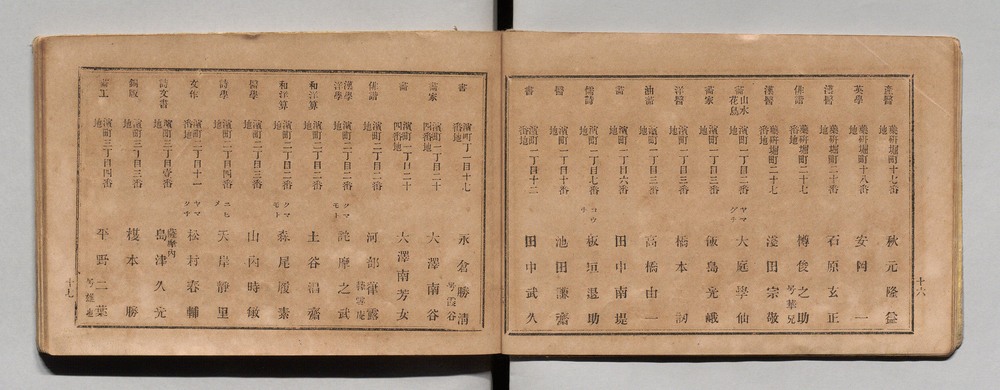 産醫 藥研堀町十七番地 秋元隆益
英學 藥研堀町十八番地 安岡一
漢醫 藥研堀町二十番地 石原玄正
俳諧 藥研堀町二十七番地 博俊之助
漢醫 藥研堀町二十七番地 淺田宗敬
山水花鳥畵 濱町一丁目二番地 ヤマグチ 大庭學仙
畵家 濱町一丁目三番地 飯島光峨
洋醫 濱町一丁目三番地 橋本
油畵 濱町一丁目三番地 高橋由一
畵 濱町一丁目六番地 田中南堤
儒詩 濱町一丁目七番地 コウチ 板垣退助
醫 濱町一丁目十番地 池田謙齋
書 濱町一丁目十二番地 田中武久
十六
書 濱町一丁目十七番地 永倉勝淸 号霞谷
畵家 濱町一丁目二十四番地 大澤南谷
畵 濱町一丁目二十四番地 大澤南芳女
俳諧 濱町二丁目二番地 河部筆露
漢學洋學 濱町二丁目二番地 クマモト 詫摩之武
和洋算 濱町二丁目二番地 土谷温齋
和洋算 濱町二丁目二番地 クマモト 森尾履素
醫學 濱町二丁目三番地 山内時敏
詩學 濱町二丁目四番地 エヒメ 天岸靜里
文作 濱町二丁目十一番地 ヤマグチ 松村春輔
詩文書 濱町三丁目壹番地 薩摩内 島津久光
銅版 濱町三丁目三番地 榎本勝
畵工 濱町三丁目四番地 平野二葉
十七